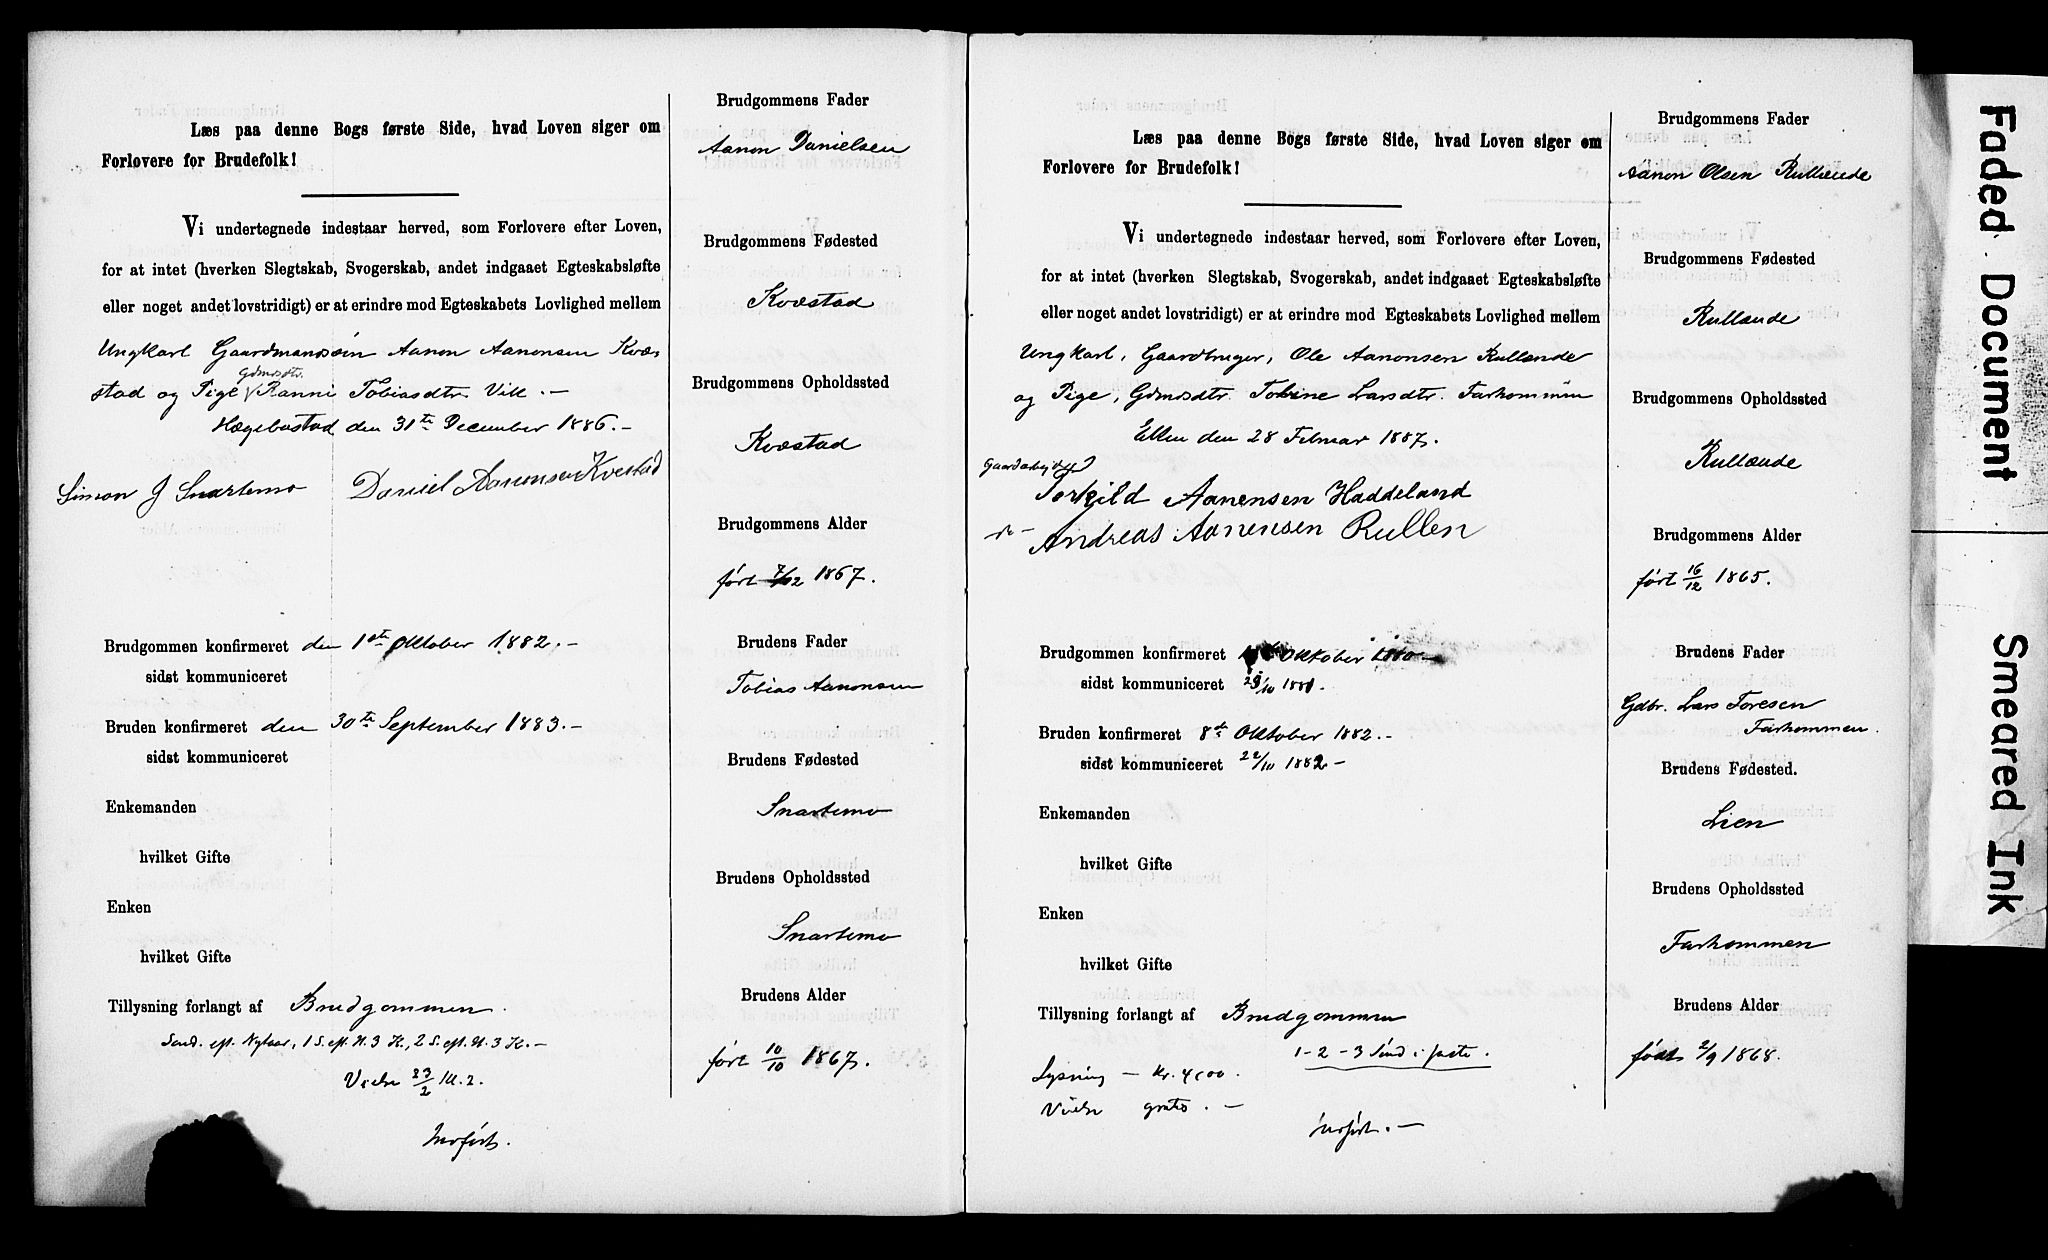 Læs paa denne Bogs første Side, hvad Loven siger om
Forlovere for Brudefolk!
Vi undertegnede indestaar herved, som Forlovere efter Loven,
for at intet (hverken Slegtskab, Svogerskab, andet indgaaet Egteskabsløfte
eller noget andet lovstridigt) er at erindre mod Egteskabets Lovlighed mellem
Ungkarl Gaardmandssøn Aanon Aanonsen Kvæ-
Gdmdsdtr.
stad og Pige Ranni Tobiasdtr. Vik. -
Hægebostad den 31te December 1886. -
Simon J Snartemo Daniel Aanonsen Kvestad
Brudgommen konfirmeret den 1ste Oktober 1882. -
sidst kommuniceret
Bruden konfirmeret den 30te September 1883. -
sidst kommuniceret
Enkemanden
hvilket Gifte
Enken
hvilket Gifte
Tillysning forlangt af Brudgommen.
Sønd. eft. Nytaar, 1 S. eft. H. 3 K., 2 S. eft. H. 3 K. -
Vielse 23/2 Kl. 2.
Indført.
Brudgommens Fader
Aanon Danielsen
Brudgommens Fødested
Kvæstad
Brudgommens Opholdssted
Kvæstad
Brudgommens Alder
født 7/12 1867.
Brudens Fader
Tobias Aanonsen
Brudens Fødested
Snartemo
Brudens Opholdssted
Snartemo
Brudens Alder
født 10/10 1867.
Læs paa denne Bogs første Side, hvad Loven siger om
Forlovere for Brudefolk!
Vi undertegnede indestaar herved, som Forlovere efter Loven,
for at intet (hverken Slegtskab, Svogerskab, andet indgaaet Egteskabsløfte
eller noget andet lovstridigt) er at erindre mod Egteskabets Lovlighed mellem
Ungkarl, Gaardbruger, Ole Aanonsen Rullende
og Pige, Gdmdsdtr. Tobine Larsdtr. Farhommen
Eiken den 28 Februar 1887.
Gaardarbejder
Torkild Aanensen Haddeland
do - Andreas Aanensen Rullen
Brudgommen konfirmeret Oktober 1880 -
sidst kommuniceret 23/10 1881.
Bruden konfirmeret 8de Oktober 1882. -
sidst kommuniceret 22/10 1882 -
Enkemanden
hvilket Gifte
Enken
hvilket Gifte
Tillysning forlangt af Brudgommen
1 - 2 - 3 Sønd i faste.
Lysning - Kr. 4,00.
Vielse gratis. -
Indført. -
Brudgommens Fader
Aanon Olsen Rullende
Brudgommens Fødested
Rullende
Brudgommens Opholdssted
Rullende
Brudgommens Alder
født 16/12 1865.
Brudens Fader
Gdbr. Lars Toresen
Farhommen.
Brudens Fødested.
Lien
Brudens Opholdssted
Farhommen
Brudens Alder
født 2/9 1868.
Faded Document
Smeared Ink